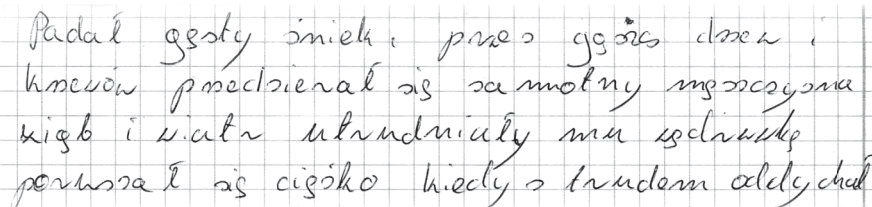 Padał gęsty śniek, przez gąszcz drzew i
krzewów przedzierał się samotny mężczyzna
ziąb i wiatr utrudniały mu wędrówkę
poruszał się ciężko kiedy z trudem oddychał